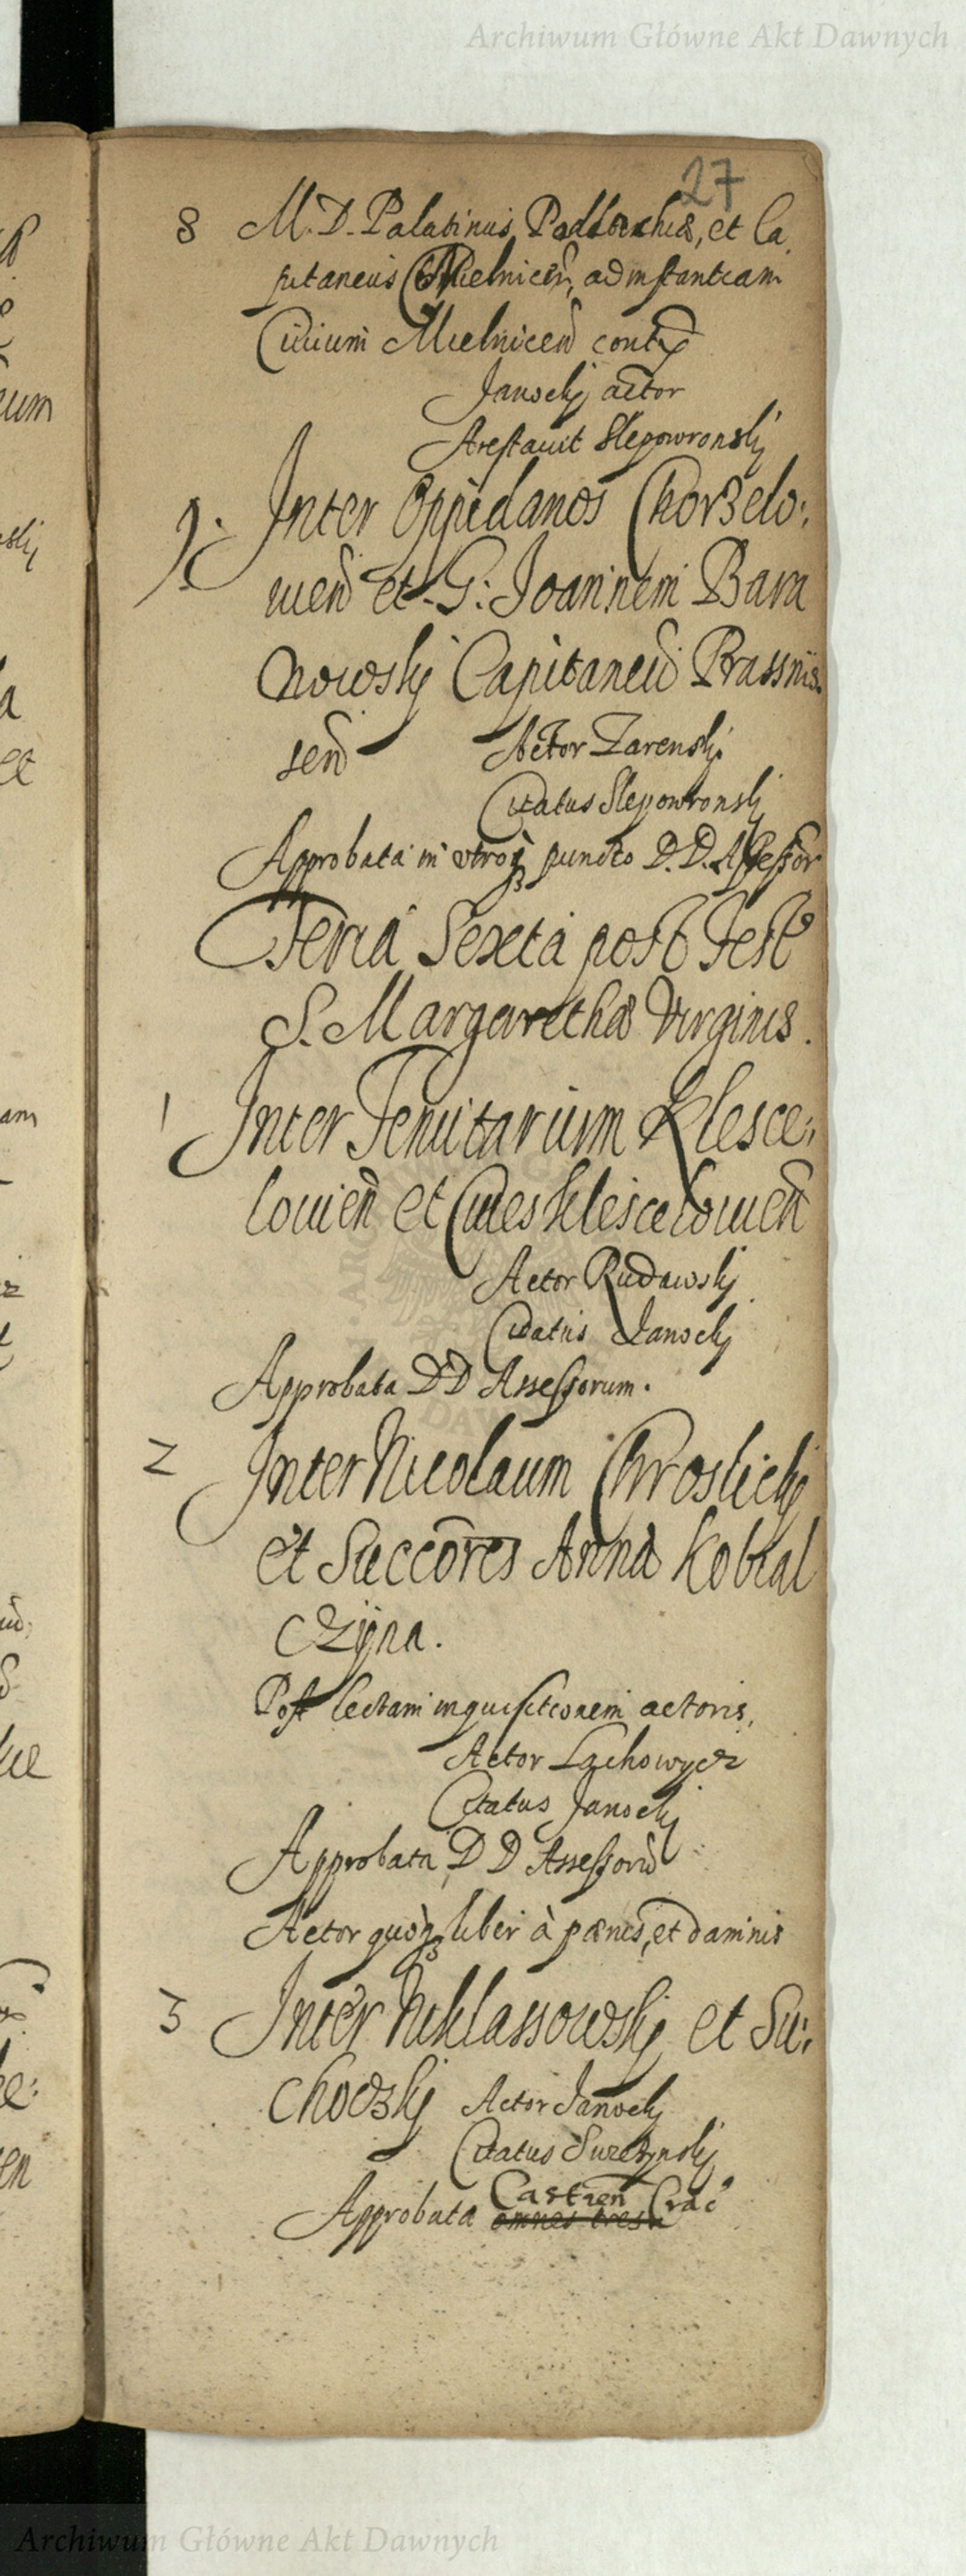 Archiwum Główne Akt Dawnych
27
8 M. D. Palatinus Podlachiæ, et Ca
pitaneus Mielnicen, ad instantiam
Civium Mielnicen contra
Janocki actor
Arestavit Slepowronskj
9. Inter Oppidanos Chorzelo:
vien et G: Joannem Bara
nowskj Capitaneu Prassnis
sen Actor Zarenskj
Citatus Slepowronskj
Approbata in utroq puncto D. D. Assessor
Feria Sexta post Fest
S. Margarethæ Virginis.
1 Inter Tenutarium Klesce:
lovien et Cives Klescelovien
Actor Rudawskj
Citatus Janockj
Approbata DD Assessorum.
2 Inter Nicolaum Chroslickj
et Succores Anna Kobial
czÿna.
Post lectam inquisitionem actoris,
Actor Lachowycz
Citatus Janockj
Approbata D D Assessoru
Actor quoq liber à pænis, et damnis
3 Inter Niklassowskj et Su:
chodzskj Actor Janockj
Citatus Surzynskj
Castren Crac
Approbata omnes tres
Archiwum Główne Akt Dawnych